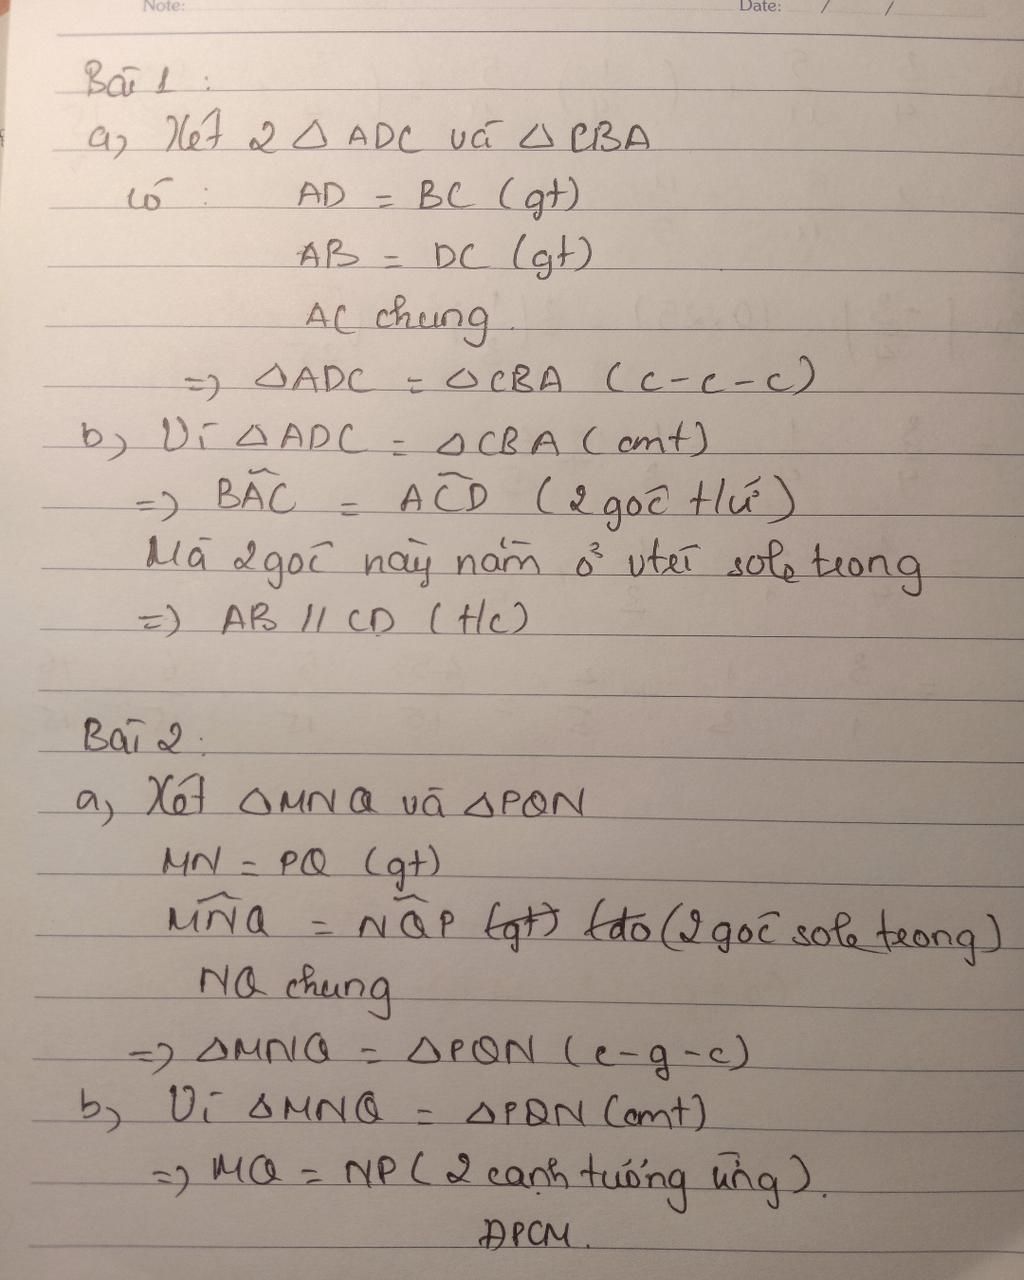 Note: Date: / /
Bài 1 :
a, Xét 2 △ ADC và △ CBA
có : AD = BC (gt)
AB = DC (gt)
AC chung.
=> △ADC = △CBA (c-c-c)
b, Vì △ADC = △CBA (cmt)
=> BÂC = AĈD (2 góc t/ứ)
Mà 2 góc này nằm ở vtrí sole trong
=> AB // CD (t/c)
Bài 2 :
a, Xét △MNQ và △PQN
MN = PQ (gt)
MN̂Q = NQ̂P (gt) (do (2 góc sole trong)
NQ chung
=> △MNQ = △PQN (c-g-c)
b, Vì △MNQ = △PQN (cmt)
=> MQ = NP (2 cạnh tướng ứng).
ĐPCM.